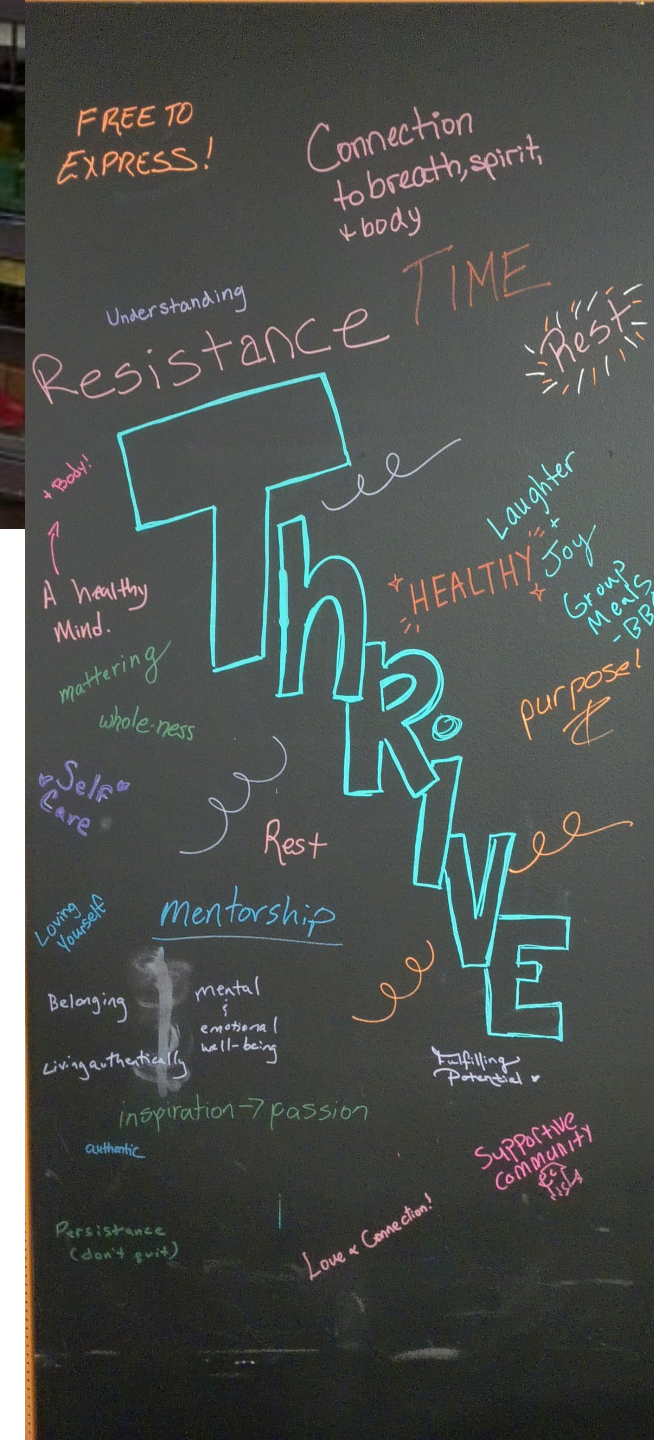 FREE TO
EXPRESS!
Connection
to breath, spirit,
+ body
TIME
Understanding
Resistance
Rest
ThRIVE
+ Body!
A healthy
Mind.
Laughter
+
Joy
HEALTHY
Group
Meals
- BB
mattering
whole-ness
purpose!
Self
Care
Rest
Loving
Yourself
mentorship
Belonging
mental
&
emotional
well-being
Living authentically
Fulfilling
Potential
inspiration → passion
authentic
Supportive
community
Persistance
(don't quit)
Love & Connection!